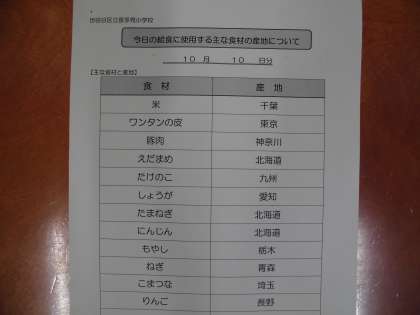 世田谷区立喜多見小学校
今日の給食に使用する主な食材の産地について
10 月 10 日分
【主な食材と産地】
食 材 産 地
米 千葉
ワンタンの皮 東京
豚肉 神奈川
えだまめ 北海道
たけのこ 九州
しょうが 愛知
たまねぎ 北海道
にんじん 北海道
もやし 栃木
ねぎ 青森
こまつな 埼玉
りんご 長野